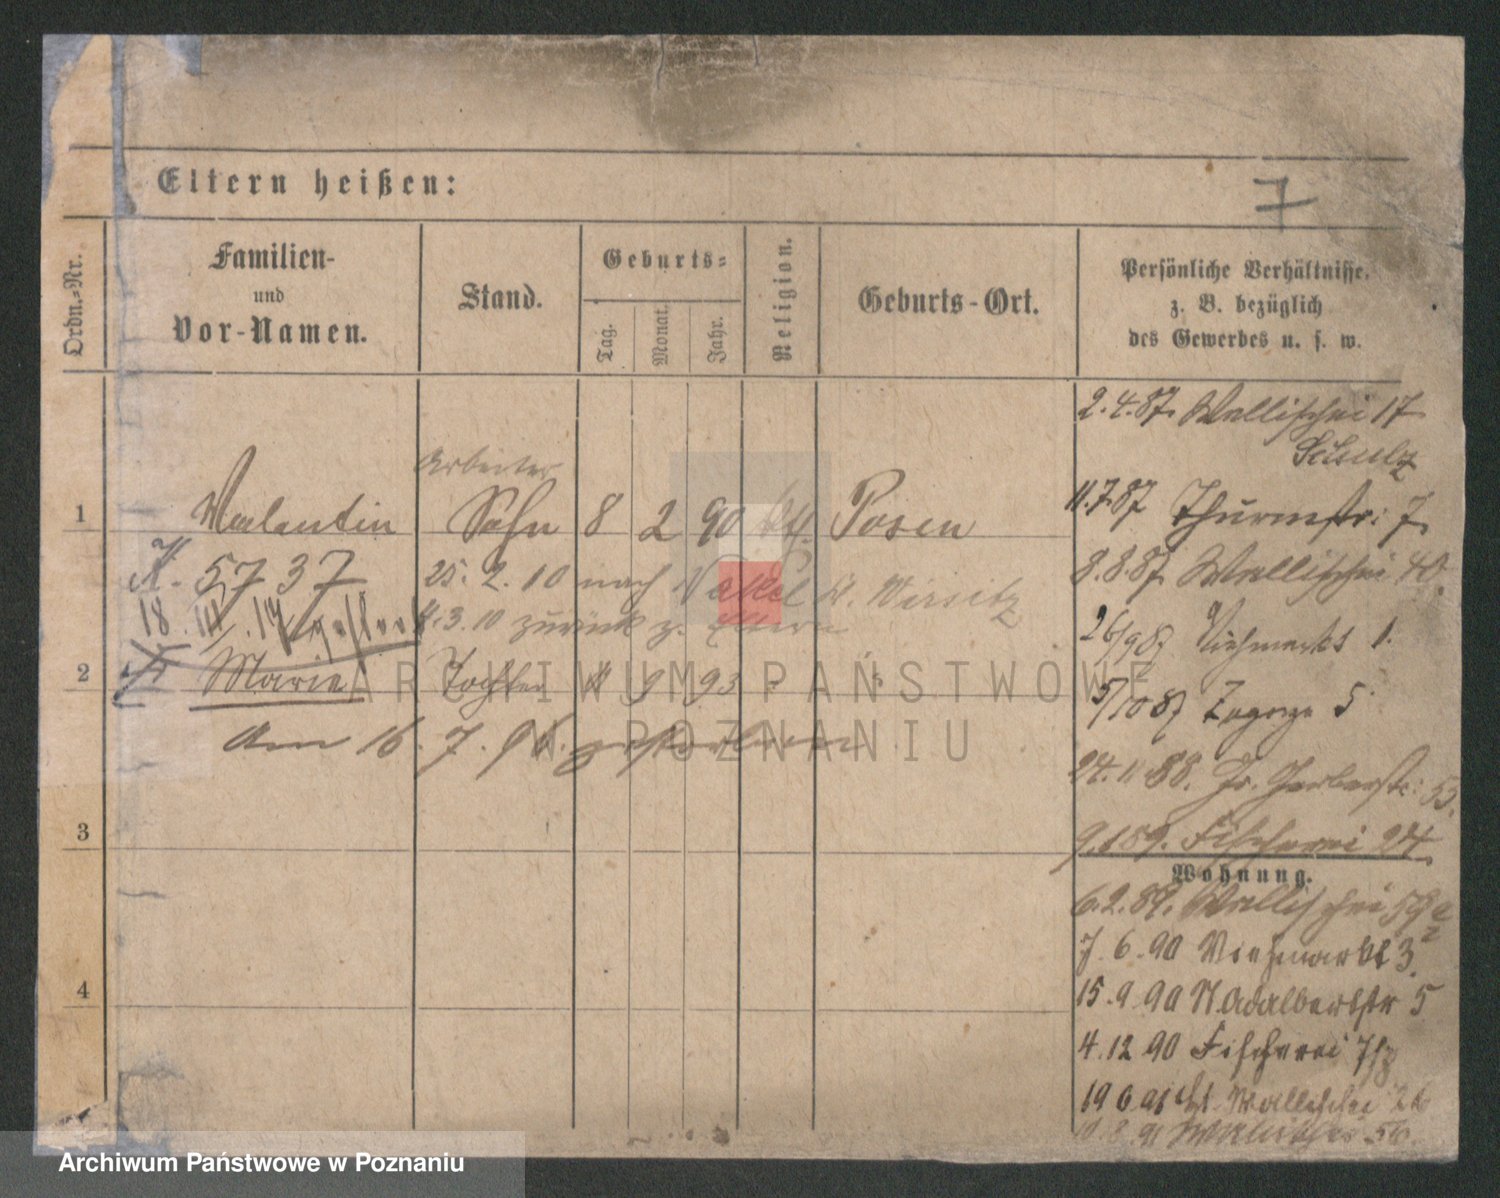 Eltern heißen:
7
Ordn.-Nr.
Familien-
und
Vor-Namen.
Stand.
Geburts-
Tag.
Monat.
Jahr.
Religion.
Geburts-Ort.
Persönliche Verhältnisse.
z. B. bezüglich
des Gewerbes u. s. w.
2.4.87. Wallischei 17
Schulz
Arbeiter
1 Valentin Sohn 8 2 90 kth. Posen
11.7.87 Thurmstr: 7
K. 5737 25. 2. 10 nach Nakel Kr. Wirsitz
8.8.87 Wallischei 40.
18. III. 17 gestorb 3.10 zurück z. Eltern
26/9 87 Viehmarkt 1.
2 Marie Tochter 9 93
5/10 87 Zagorze 5
Am 16. 7. 96. gestorben
24.11.88. Gr. Gerberstr: 53.
3
9.1.89. Fischerei 24.
Wohnung.
6.2.89. Wallischei
7. 6. 90 Viehmarkt 3.
4
15. 9. 90 Adalbertstr 5
4.12 90 Fischerei
19 6 91 Wallischei 26
91 56.
ARCHIWUM PAŃSTWOWE
W POZNANIU
Archiwum Państwowe w Poznaniu